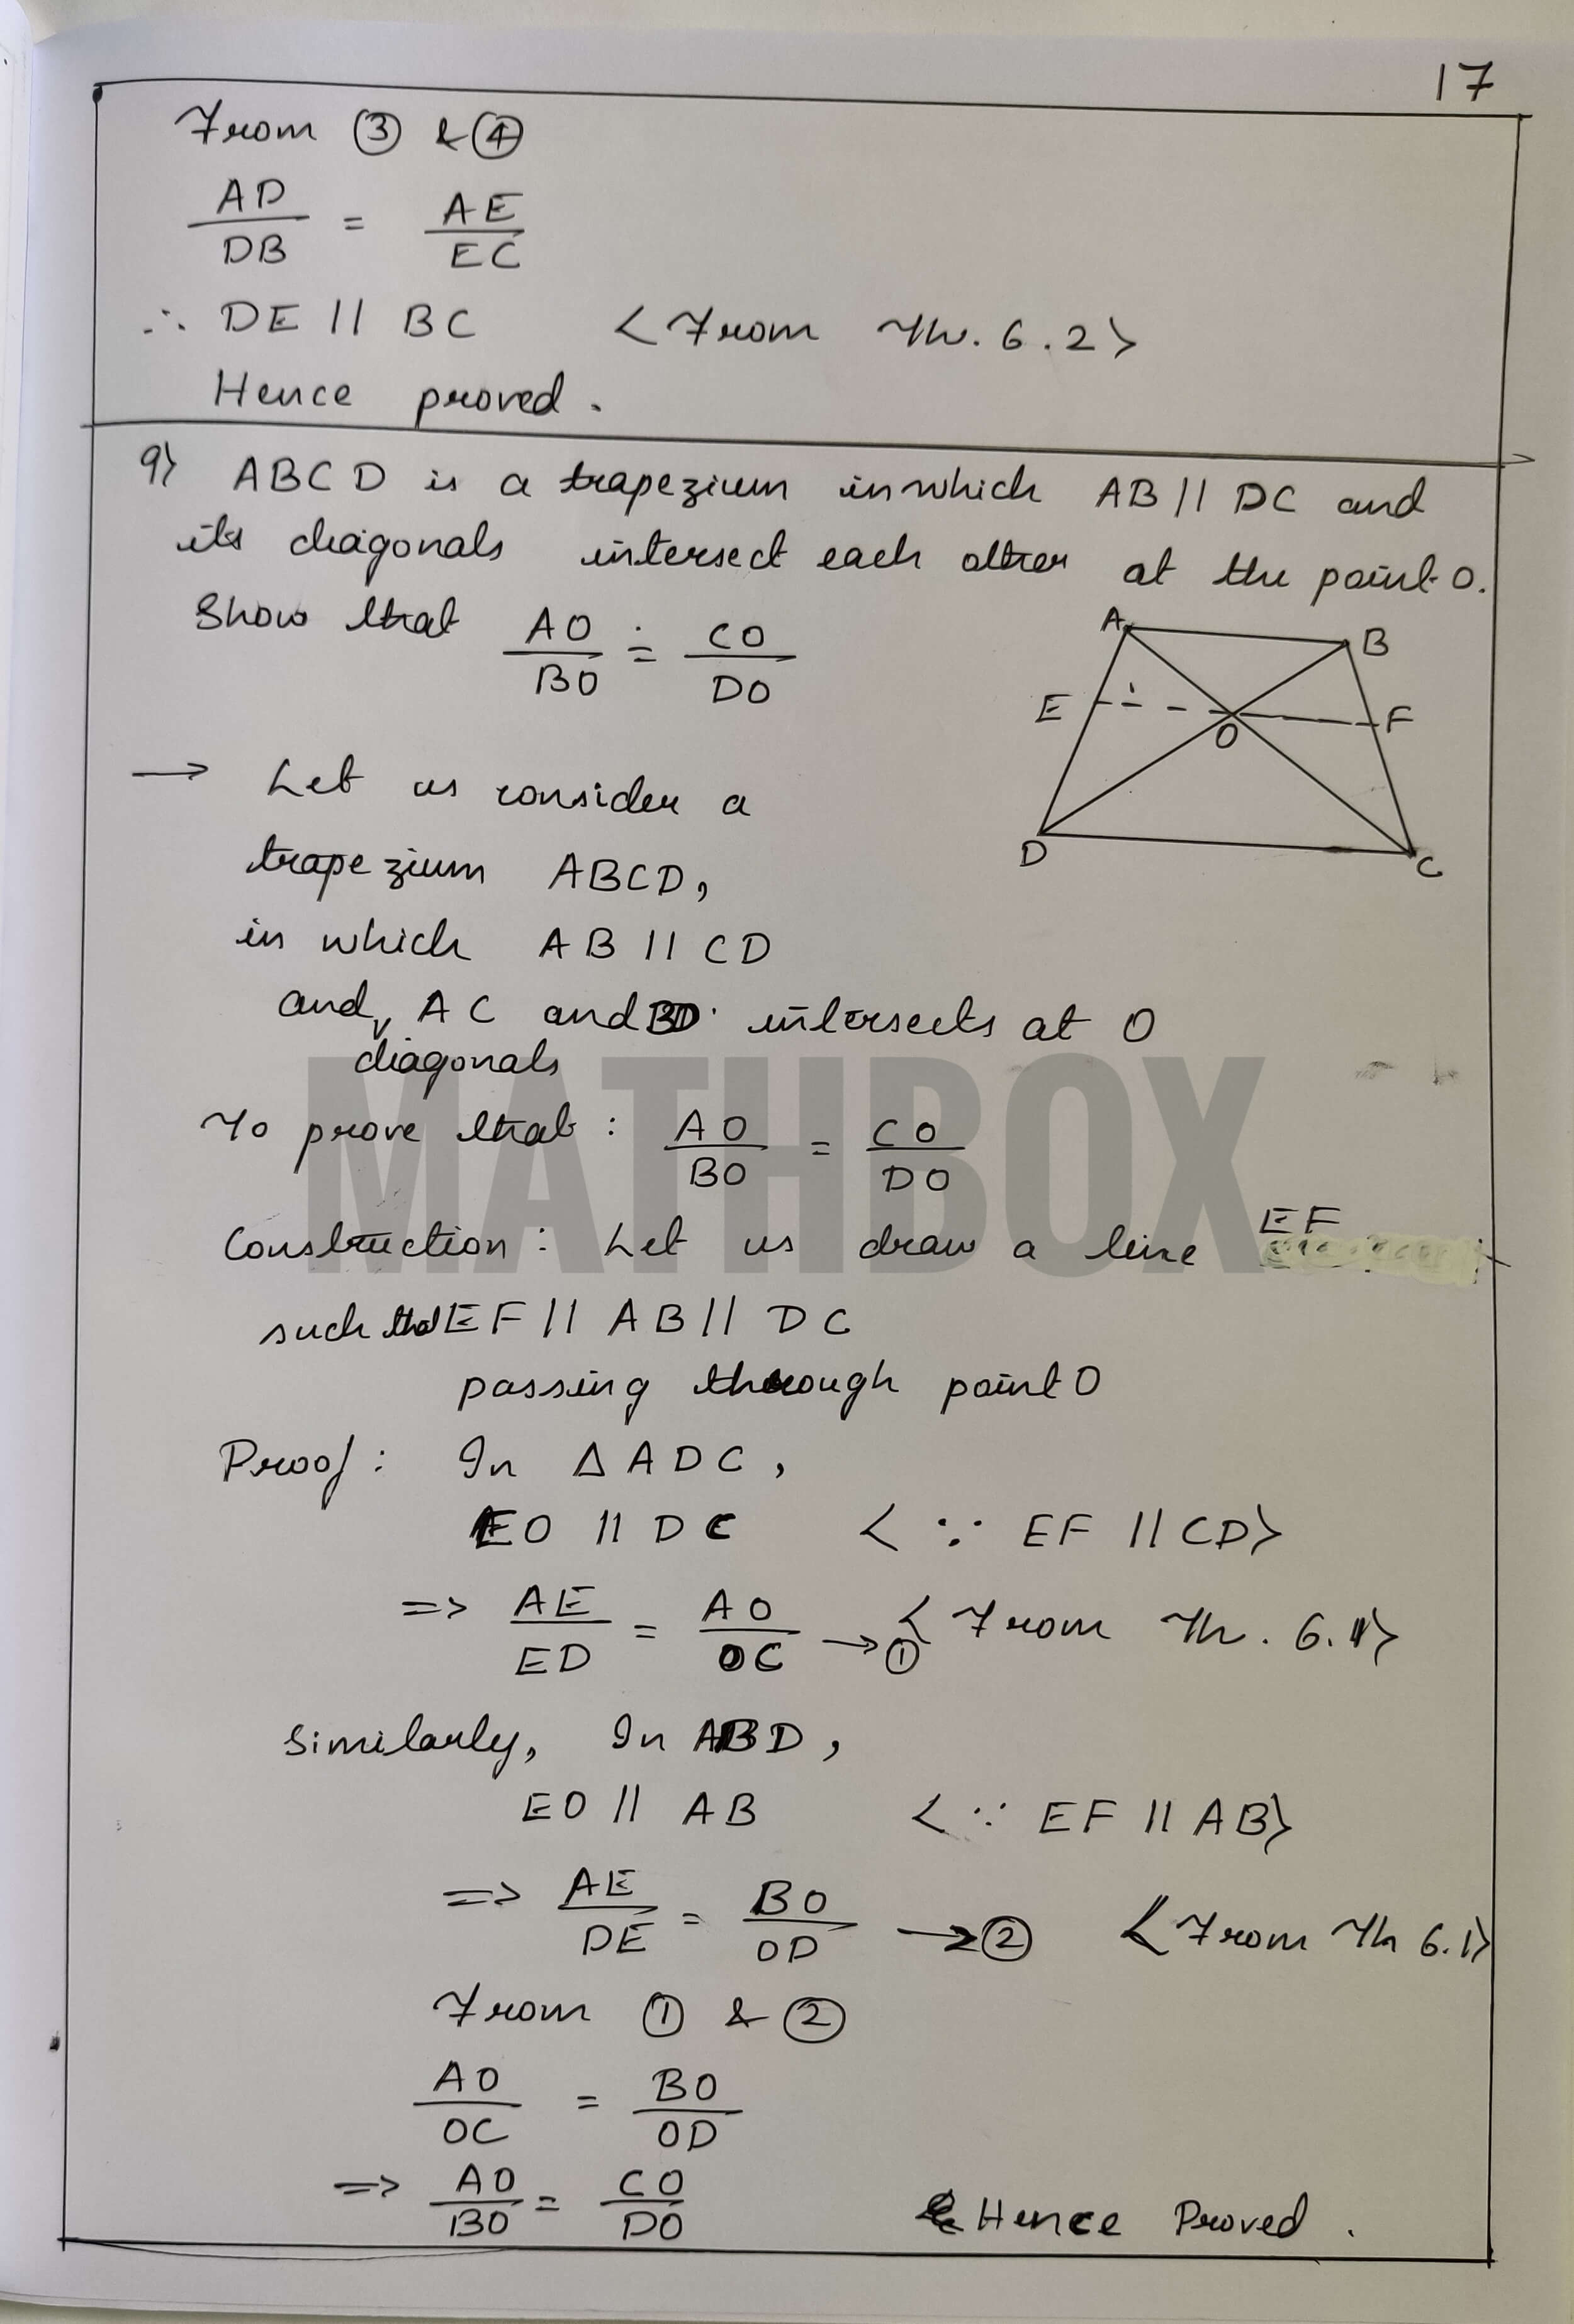 17
From ③ & ④
AD/DB = AE/EC
∴ DE || BC <From Th. 6.2>
Hence proved.
9> ABCD is a trapezium in which AB || DC and
its diagonals intersect each other at the point O.
Show that AO/BO = CO/DO
A B
E F
O
D C
→ Let us consider a
trapezium ABCD,
in which AB || CD
and, AC and BD intersects at O
diagonals
To prove that : AO/BO = CO/DO
Construction : Let us draw a line EF
such that EF || AB || DC
passing through point O
Proof : In Δ ADC,
EO || DC <∵ EF || CD>
=> AE/ED = AO/OC → ① <From Th. 6.1>
Similarly, In ABD,
EO || AB <∵ EF || AB>
=> AE/DE = BO/OD → ② <From Th 6.1>
From ① & ②
AO/OC = BO/OD
=> AO/BO = CO/DO Hence Proved.
MATHBOX